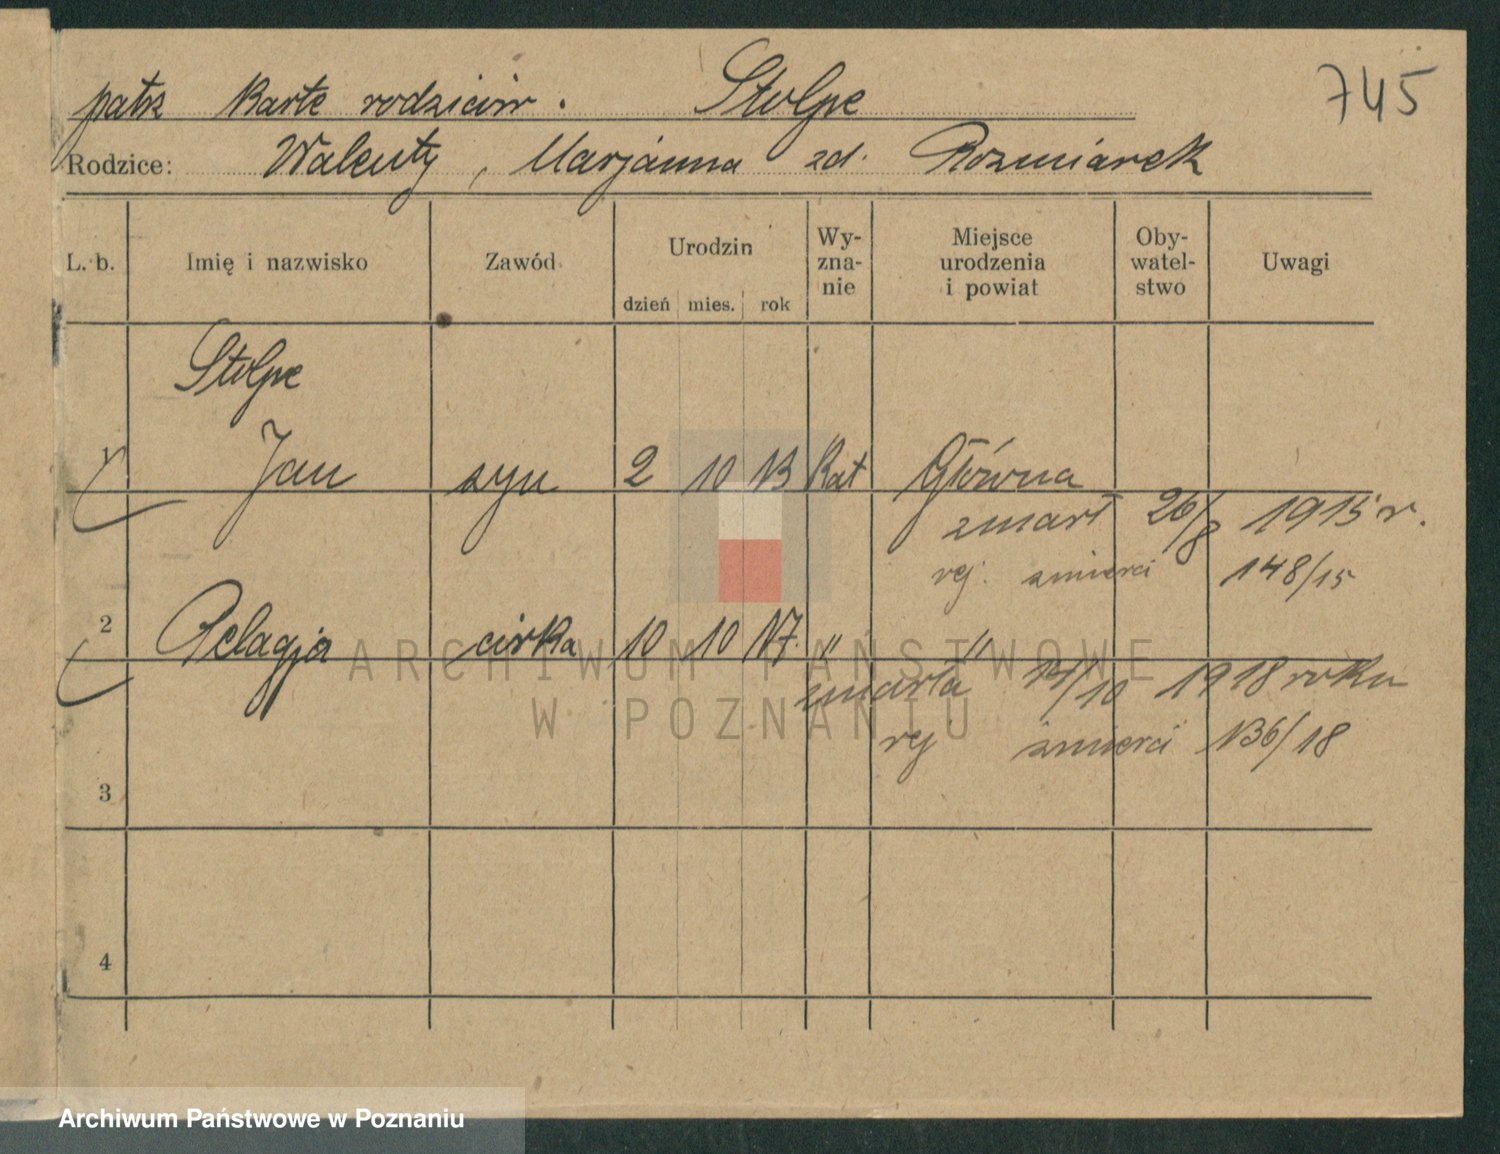 745
patrz kartę rodziców. Stolpe
Rodzice: Walenty, Marjanna zd. Rozmiarek
L. b. Imię i nazwisko Zawód Urodzin dzień mies. rok Wy-zna-nie Miejsce urodzenia i powiat Oby-watel-stwo Uwagi
Stolpe
1 Jan syn 2 10 13 Kat Główna
zmarł 26/8 1915 r.
rej. śmierci 148/15
2 Pelagja córka 10 10 17. " "
zmarła /10 1918 roku
rej śmierci 136/18
3
4
ARCHIWUM PAŃSTWOWE
W POZNANIU
Archiwum Państwowe w Poznaniu